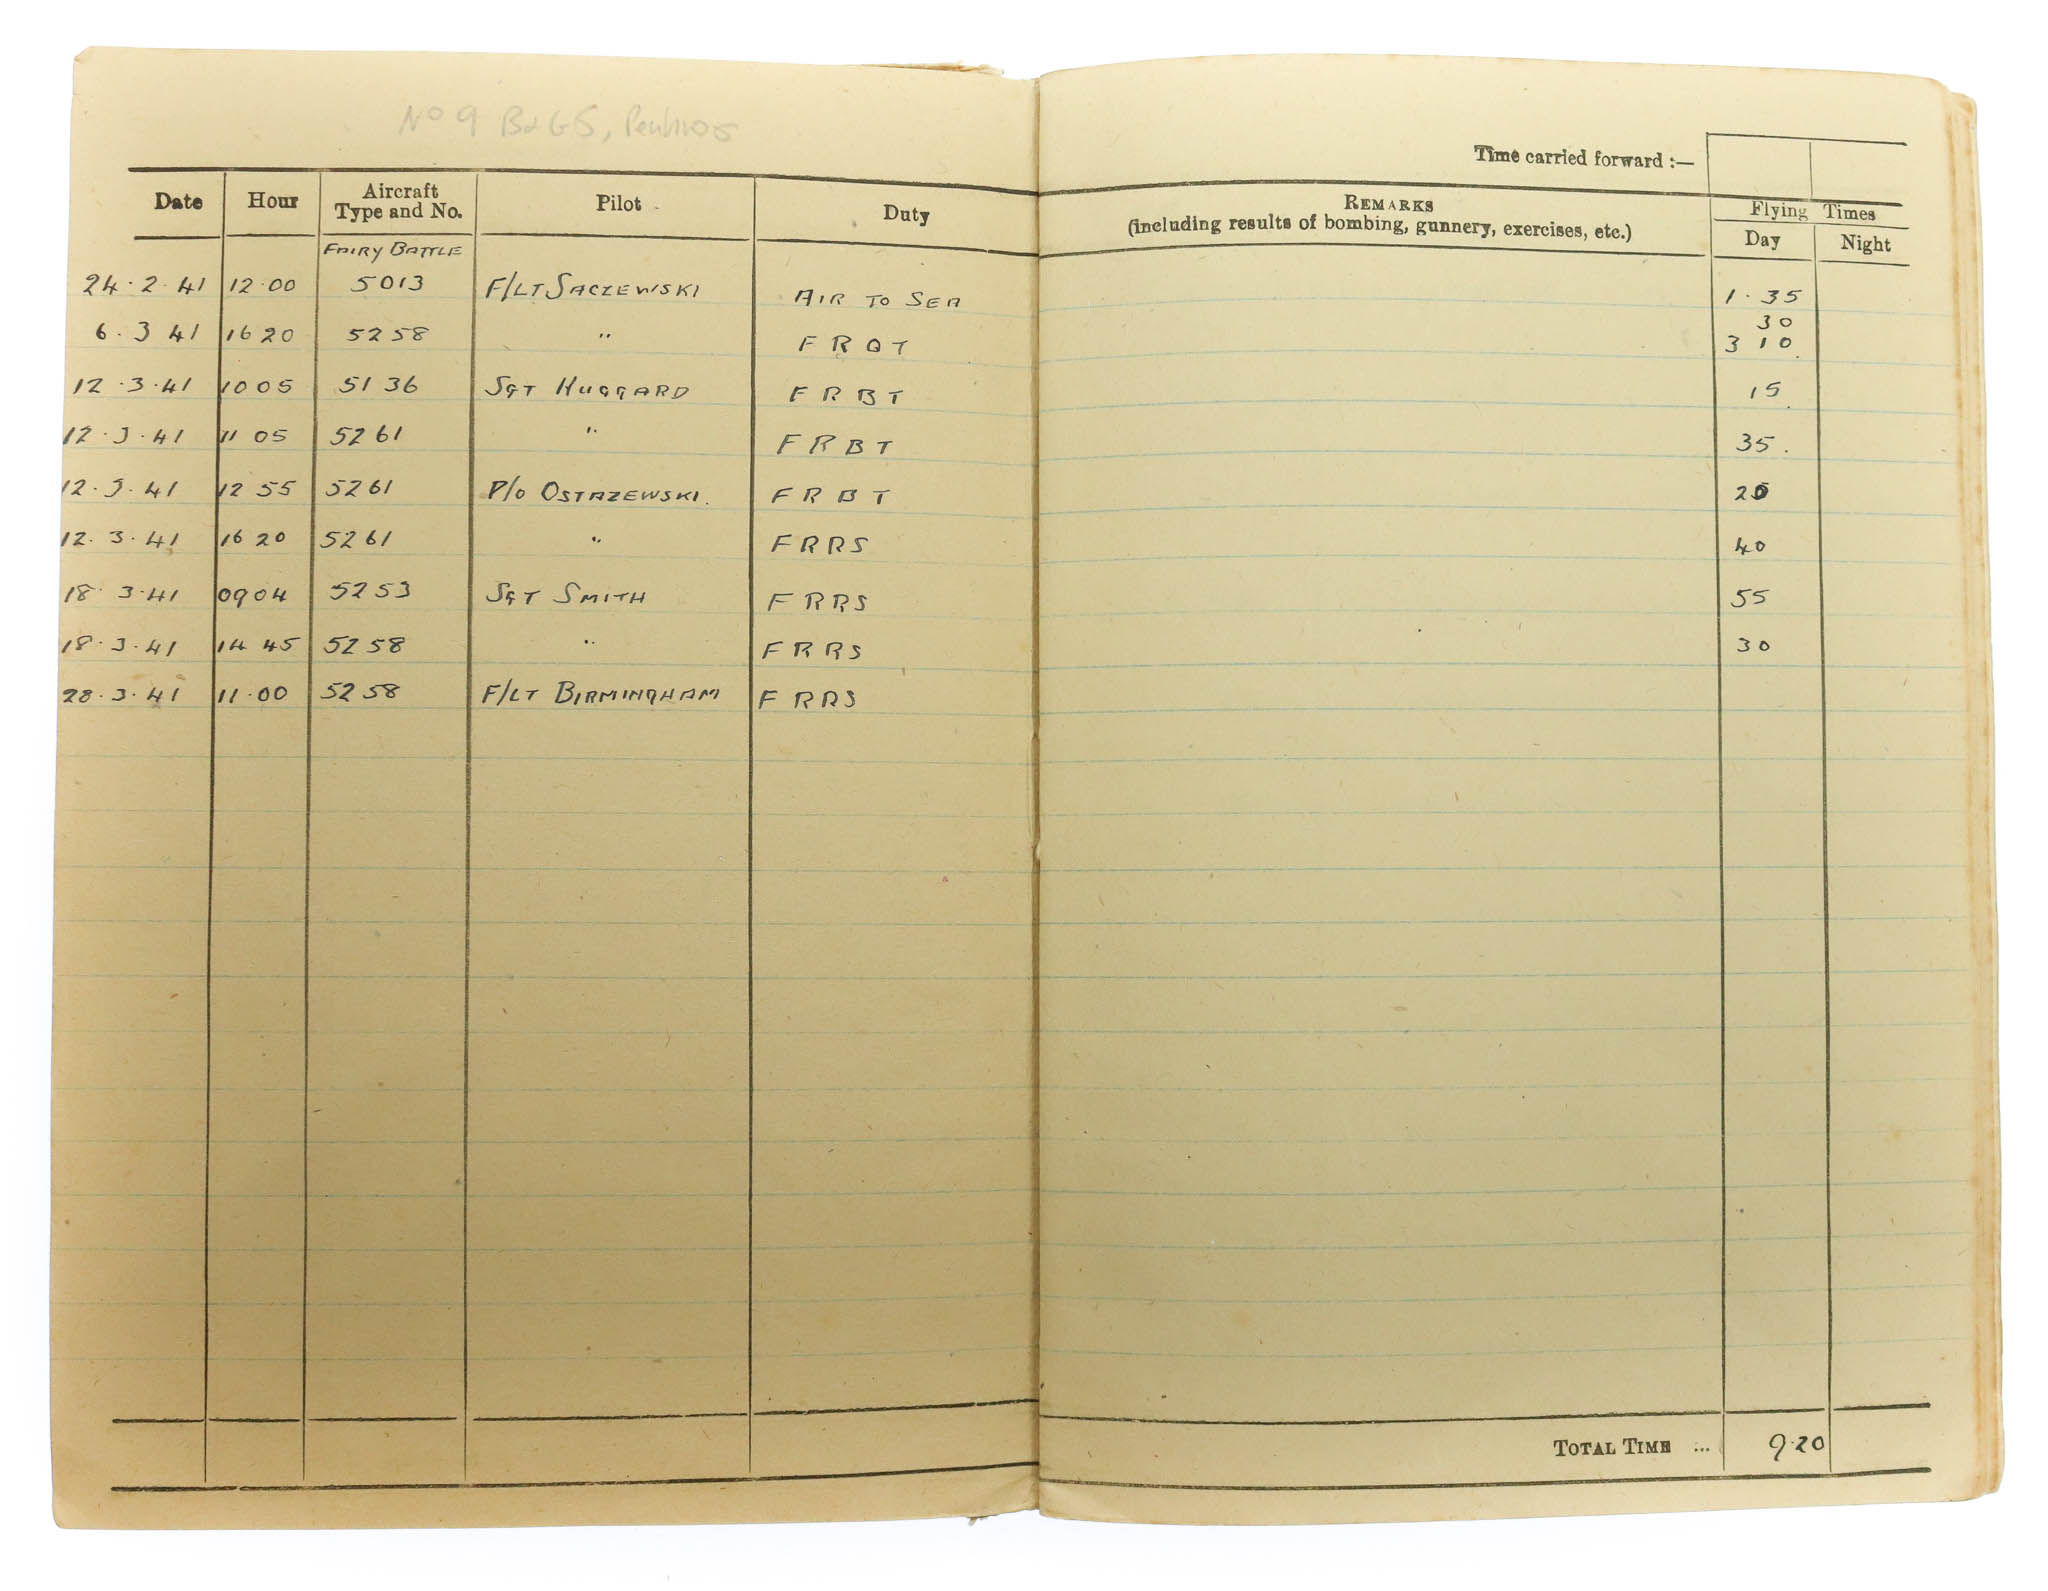 No 9 B & GS, Penrhos
Time carried forward :—
Date Hour Aircraft Type and No. Pilot Duty REMARKS (including results of bombing, gunnery, exercises, etc.) Flying Times Day Night
FAIRY BATTLE
24·2·41 12·00 5013 F/LT SACZEWSKI AIR TO SEA 1·35
30
6·3 41 16 20 5258 " F R Q T 3 10
12·3·41 10 05 5136 SGT HUGGARD F R B T 15
12·3·41 11 05 5261 " F R B T 35
12·3·41 12 55 5261 P/O OSTAZEWSKI. F R B T
12·3·41 16 20 5261 " F R R S 40
18·3·41 0904 5253 SGT SMITH F R R S 55
18·3·41 14 45 5258 " F R R S 30
28·3·41 11·00 5258 F/LT BIRMINGHAM F R R S
TOTAL TIME ... 9·20